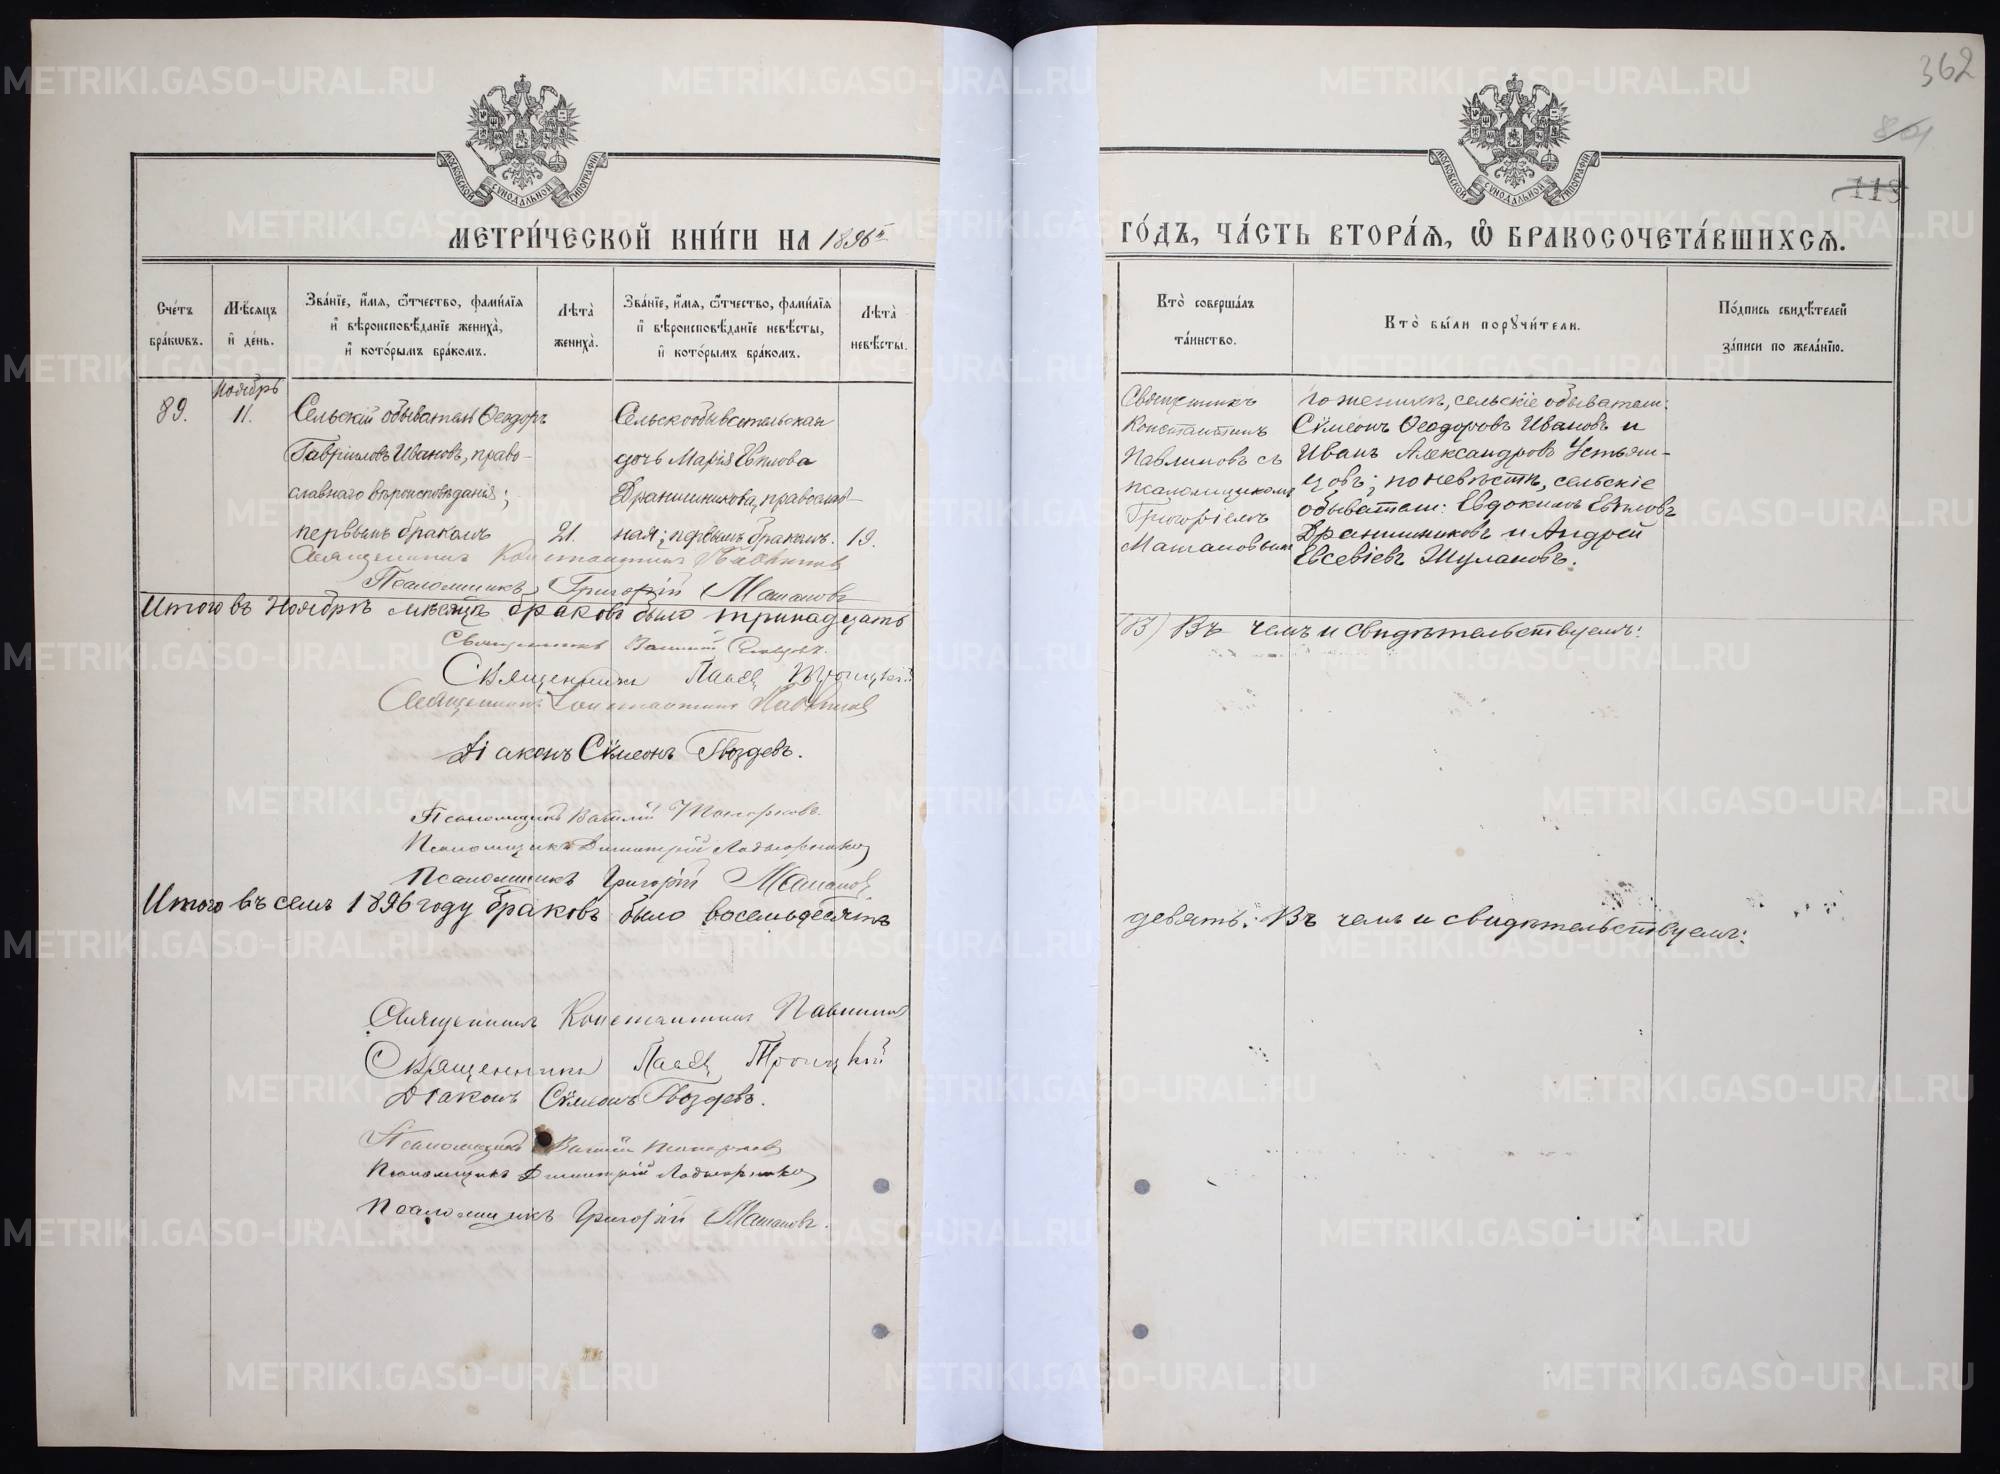 362
119
МОСКОВСКОЙ СУНОДАЛЬНОЙ ТИПОГРАФІИ
МОСКОВСКОЙ СУНОДАЛЬНОЙ ТИПОГРАФІИ
МЕТРИ́ЧЕСКОЙ КНИ́ГИ НА 1896й
ГО́ДЪ, ЧА́СТЬ ВТОРА́Я, Ѡ БРАКОСОЧЕТА́ВШИХСЯ.
Сче́тъ бра́кѡвъ.
Мѣ́сяцъ и҆ де́нь.
Зва́нїе, и҆́мя, ѻ҆́тчество, фами́лїя и҆ вѣроисповѣ́данїе жениха̀, и҆ кото́рымъ бра́комъ.
Лѣта̀ жениха̀.
Зва́нїе, и҆́мя, ѻ҆́тчество, фами́лїя и҆ вѣроисповѣ́данїе невѣ́сты, и҆ кото́рымъ бра́комъ.
Лѣта̀ невѣ́сты.
Кто̀ соверша́лъ та́инство.
Кто̀ бы́ли порꙋчи́тели.
По́дпись свидѣ́телей за́писи по жела́нїю.
Ноябрь
89.
11.
Сельскій обыватель Ѳеодоръ
Гавріиловъ Ивановъ, право-
славнаго вѣроисповѣданія;
первымъ бракомъ
21.
Сельскообывательская
дочь Марія Евѳилова
Дранишникова, православ-
ная; первымъ бракомъ.
19.
Священникъ
Константинъ
Павлиновъ съ
псаломщикомъ
Григоріемъ
По женихѣ, сельскіе обыватели:
Сѵмеонъ Ѳеодоровъ Ивановъ и
Иванъ Александровъ Устьян-
цовъ; по невѣстѣ, сельскіе
обыватели: Евдокимъ
Дранишниковъ и Андрей
Евсевіевъ Шулаковъ.
Священникъ Константинъ Павлиновъ
Псаломщикъ Григорій
Итого въ Ноябрѣ мѣсяцѣ браковъ было тринадцать
(13) Въ чемъ и свидѣтельствуемъ:
Священникъ
Священникъ Павелъ Троицкій
Священникъ Константинъ Павлиновъ
Діаконъ Сѵмеонъ Гвоздевъ.
Псаломщикъ Василій
Псаломщикъ Димитрій
Псаломщикъ Григорій
Итого въ семъ 1896 году браковъ было восемьдесятъ
девять: Въ чемъ и свидѣтельствуемъ:
Священникъ Константинъ Павлиновъ
Священникъ Павелъ Троицкій
Діаконъ Сѵмеонъ Гвоздевъ.
Псаломщикъ Василій
Псаломщикъ Димитрій
Псаломщикъ Григорій
METRIKI.GASO-URAL.RU